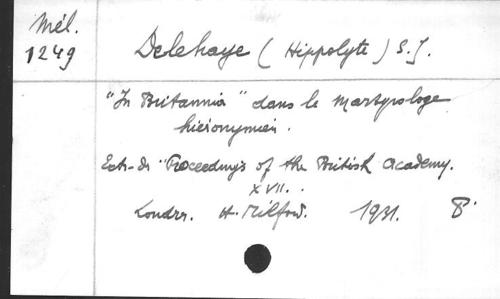 Mél.
1249
Delehaye (Hippolyte) S.J.
"In Britannia" dans le Martyrologe
hiéronymien.
Extr. de Proceedings of the British Academy.
XVII.
Londres. H. Milford. 1931. 8°